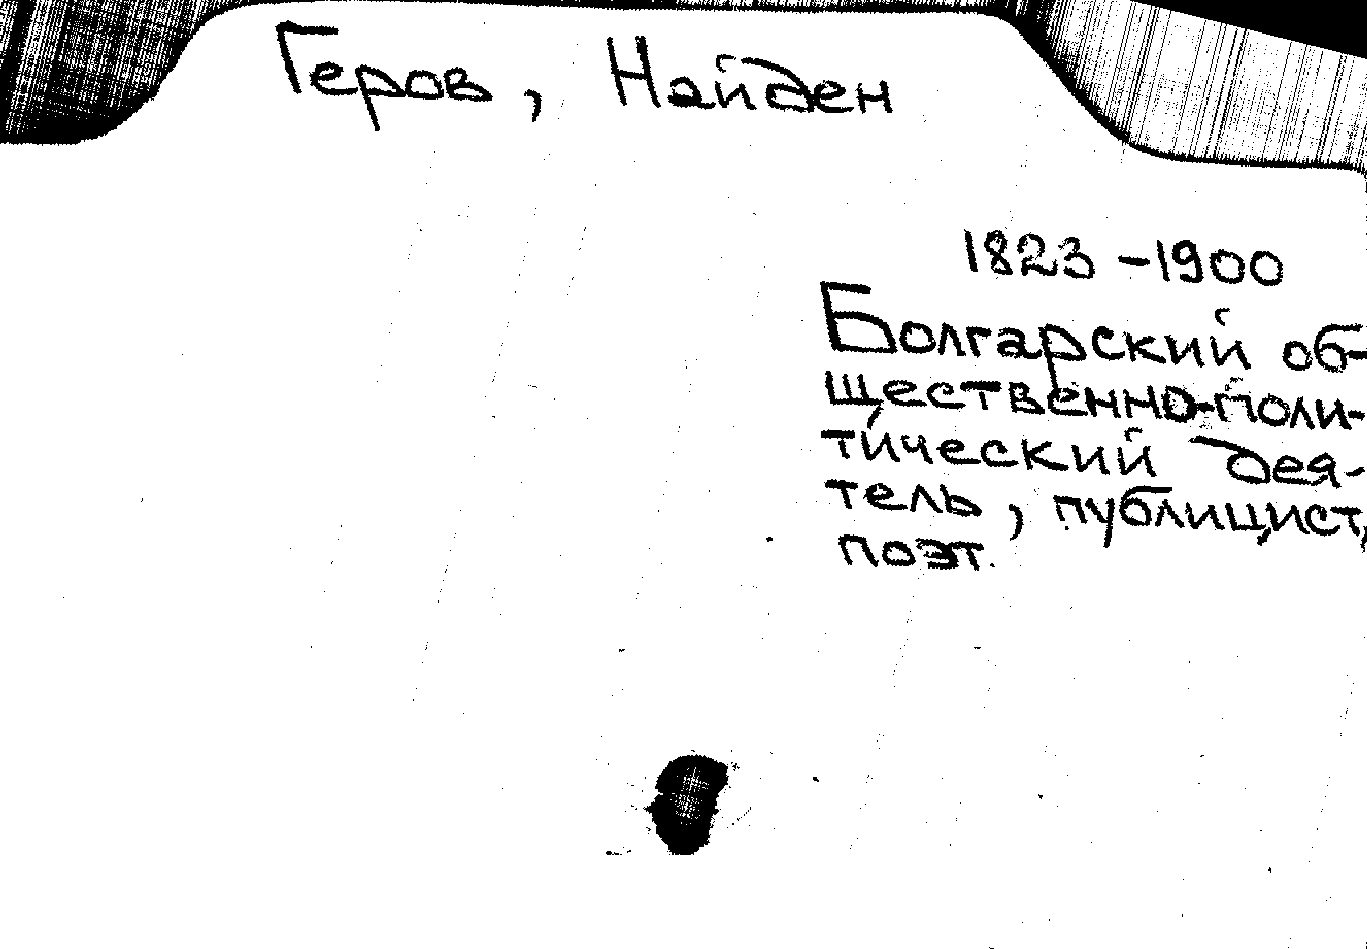 Геров, Найден
1823-1900
Болгарский об-
щественно-поли-
тический дея-
тель, публицист,
поэт.